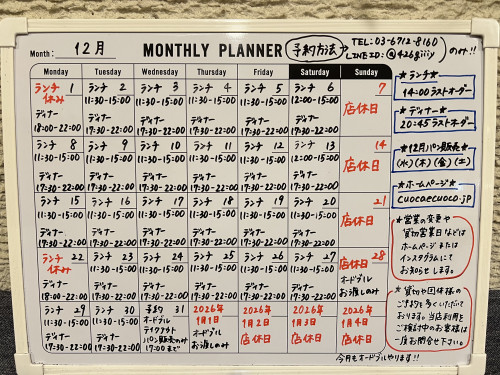 Month: 12月 MONTHLY PLANNER 予約方法 TEL:03-6712-8160
LINE ID: @426giiiy のみ!!
Monday Tuesday Wednesday Thursday Friday Saturday Sunday
ランチ 1 ランチ 2 ランチ 3 ランチ 4 ランチ 5 ランチ 6 7
休み 11:30-15:00 11:30-15:00 11:30-15:00 11:30-15:00 12:00-15:00 店休日
ディナー ディナー ディナー ディナー ディナー ディナー
18:00-22:00 17:30-22:00 17:30-22:00 17:30-22:00 17:30-22:00 17:30-22:00
ランチ 8 ランチ 9 ランチ 10 ランチ 11 ランチ 12 ランチ 13 14
11:30-15:00 11:30-15:00 11:30-15:00 11:30-15:00 11:30-15:00 12:00-15:00 店休日
ディナー ディナー ディナー ディナー ディナー ディナー
17:30-22:00 17:30-22:00 17:30-22:00 17:30-22:00 17:30-22:00 17:30-22:00
ランチ 15 ランチ 16 ランチ 17 ランチ 18 ランチ 19 ランチ 20 21
11:30-15:00 11:30-15:00 11:30-15:00 11:30-15:00 11:30-15:00 11:30-15:00 店休日
ディナー ディナー ディナー ディナー ディナー ディナー
17:30-22:00 17:30-22:00 17:30-22:00 17:30-22:00 17:30-22:00 17:30-22:00
ランチ 22 ランチ 23 ランチ 24 ランチ 25 ランチ 26 ランチ 27 28
休み 11:30-15:00 11:30-15:00 11:30-15:00 11:30-15:00 11:30-15:00 店休日
ディナー ディナー ディナー ディナー ディナー ディナー オードブル
18:00-22:00 17:30-22:00 17:30-22:00 17:30-22:00 17:30-22:00 17:30-22:00 お渡しのみ
ランチ 29 ランチ 30 予約 31 2026年 2026年 2026年 2026年
11:30-15:00 11:30-15:00 オードブル 1月1日 1月2日 1月3日 1月4日
ディナー ディナー テイクアウト オードブル 店休日 店休日 店休日
17:30-22:00 17:30-22:00 パン販売のみ お渡しのみ
17:00まで
今月もオードブルやります!!
★ランチ★
14:00ラストオーダー
★ディナー★
20:45ラストオーダー
★12月パン販売★
(水)(木)(金)(土)
★ホームページ★
cuocaecuoco.jp
★営業の変更や
貸切営業日などは
ホームページまたは
インスタグラムにて
お知らせします。
★貸切や団体様の
ご予約も多くいただいて
おります。当店利用を
ご検討中のお客様は
一度お問合せ下さい。